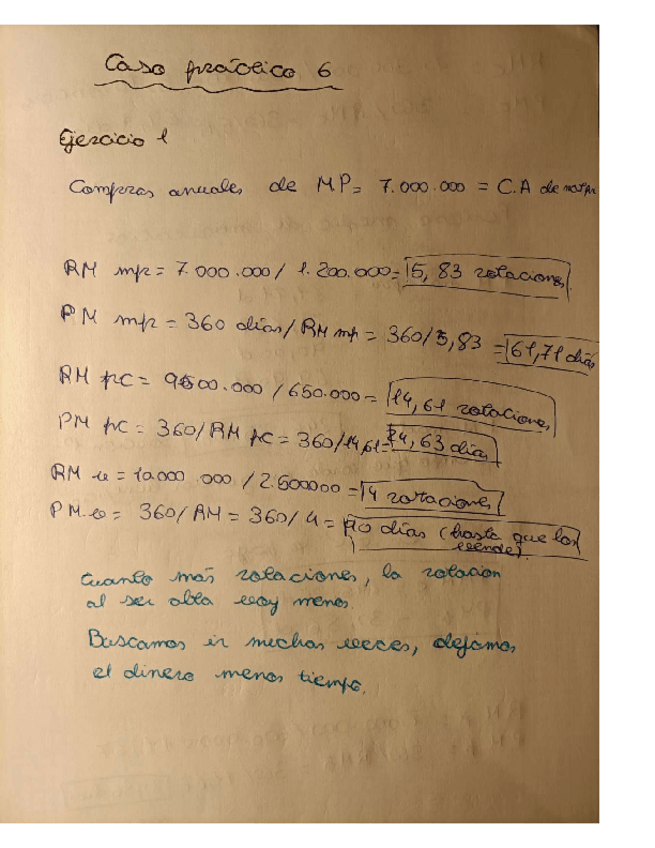 Caso práctico 6
Ejercicio 1
Compras anuales de MP= 7.000.000 = C.A de mat pr
RM mp= 7.000.000 / 1.200.000= 5,83 rotaciones
PM mp = 360 días/RM mp = 360/5,83 = 61,71 días
RM pc= 9500.000 / 650.000= 14,61 rotaciones
PM pc = 360/RM pc = 360/14,61= 24,63 días
RM v= 10.000.000 / 2.500000 = 4 rotaciones
PM v= 360/RM = 360/4 = 90 días (hasta que los
vende)
Cuanto más rotaciones, la rotacion
al ser alta voy menos.
Buscamos ir muchas veces, dejamos
el dinero menos tiempo.